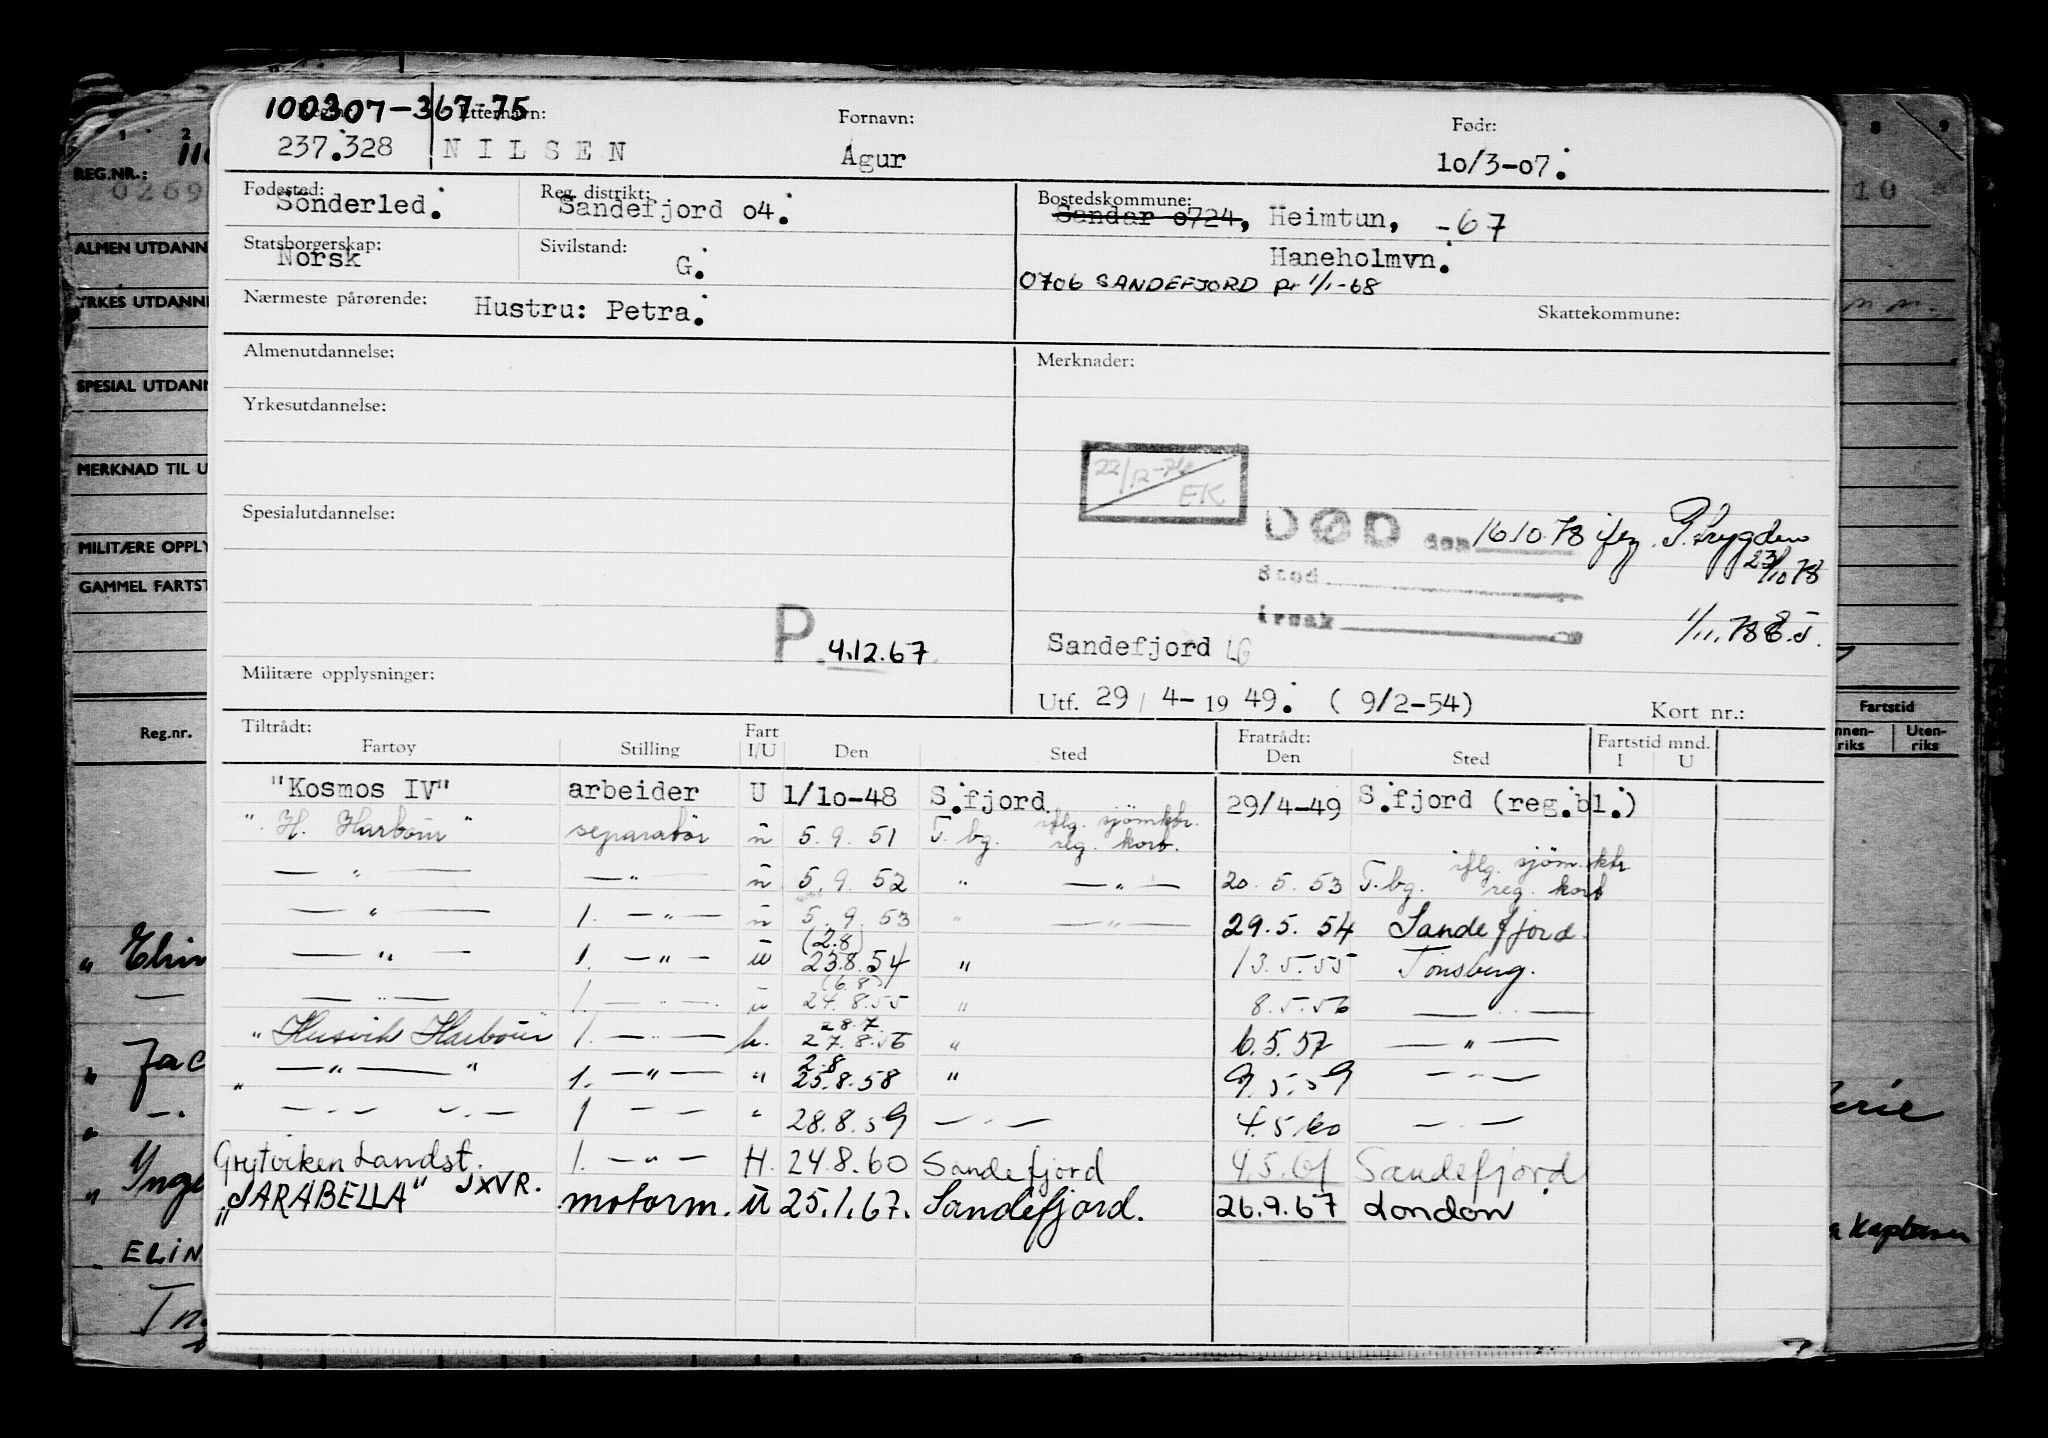 100307-367-75
Etternavn: Fornavn: Født:
237.328 NILSEN Agur 10/3-07.
Fødested: Sönderled. Reg. distrikt: Sandefjord o4. Bostedskommune: Sandar o724, Heimtun, -67
Statsborgerskap: Norsk Sivilstand: G. Haneholmvn.
0706 SANDEFJORD pr 1/1-68
Nærmeste pårørende: Hustru: Petra. Skattekommune:
Almenutdannelse: Merknader:
Yrkesutdannelse:
22/12-76 EK
Spesialutdannelse: DØD den 16.10.78 iflg. P. trygden 23/10 78
Sted
Årsak 1/11.78
P. 4.12.67. Sandefjord LG
Militære opplysninger: Utf. 29/4-1949. (9/2-54) Kort nr.:
Tiltrådt: Fart Fratrådt: Fartstid mnd.
Fartøy Stilling I/U Den Sted Den Sted I U
"Kosmos IV" arbeider U 1/10-48 S.fjord 29/4-49 S.fjord (reg.bl.)
". H. Harbour" separatør u 5.9.51 T.bg. iflg. sjømktr. reg. kort.
— " — — " — u 5.9.52 " — " — 20.5.53 T.bg. iflg. sjøm.ktr reg. kort
— " — 1. — " — u 5.9.53 " — " — 29.5.54 Sandefjord.
— " — 1. — " — u (2.8) 23.8.54 " 13.5.55 Tønsberg.
— " — 1. — " — u (6.8) 24.8.55 " 8.5.56 — " —
"Husvik Harbour" 1. — " — h. 28.7. 27.8.56 " 6.5.57 — " —
" — " — " 1. — " — " 2.8 25.8.58 " 9.5.59 — " —
— " — 1 — " — " 28.8.59 — " — 4.5.60 — " —
Grytviken Landst. 1. — " — H. 24.8.60 Sandefjord 4.5.61 Sandefjord
"SARABELLA" JXVR. motorm. U 25.1.67. Sandefjord. 26.9.67 London
REG.NR.:
0269
ALMEN UTDANN
YRKES UTDANN
SPESIAL UTDANN
MERKNAD TIL U
MILITÆRE OPPLY
GAMMEL FARTST
Reg.nr.
Fartstid
nnen-riks Uten-riks
ELIN